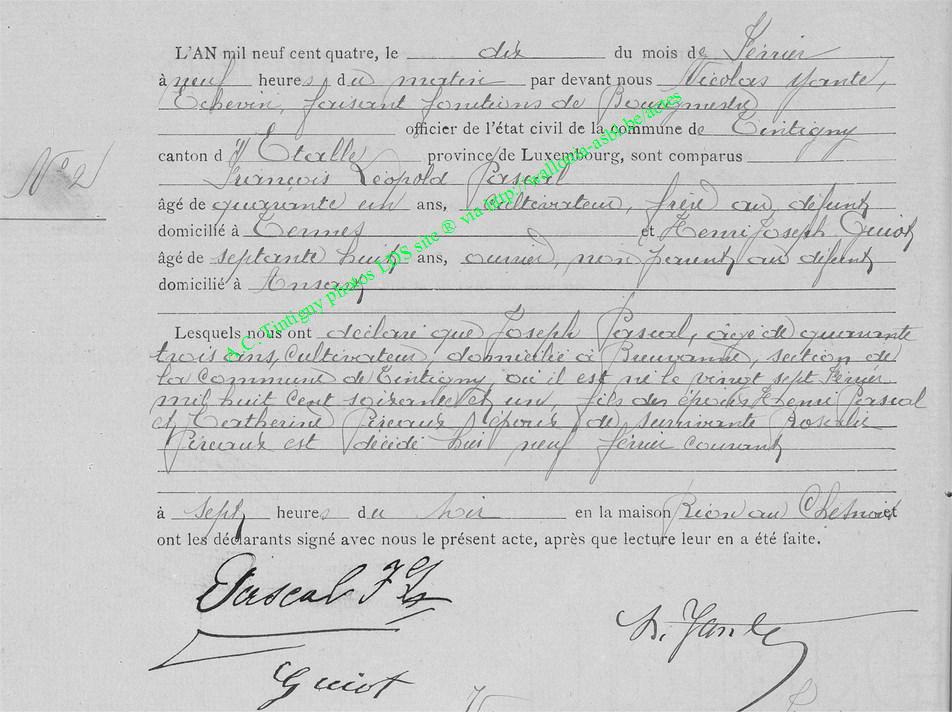 L'AN mil neuf cent quatre, le dix du mois de Février
à neuf heures du matin par devant nous Nicolas Yante,
Echevin, faisant fonctions de Bourgmestre
officier de l'état civil de la commune de Tintigny
canton d'Etalle province de Luxembourg, sont comparus
N° 2
François Léopold Pascal
âgé de quarante un ans, cultivateur, frère au défunt
domicilié à Termes et Henri Joseph Guiot
âgé de septante huit ans, ouvrier, non parent au défunt
domicilié à Ansart
Lesquels nous ont déclaré que Joseph Pascal, âgé de quarante
trois ans, cultivateur, domicilié à Breuvanne, section de
la commune de Tintigny, où il est né le vingt sept Février
mil huit cent soixante et un, fils des époux Henri Pascal
et Catherine Pireaux époux de survivante Rosalie
Pireaux est décédé hier neuf février courant
à sept heures du soir en la maison Rion au Chesnois et
ont les déclarants signé avec nous le présent acte, après que lecture leur en a été faite.
Pascal F L
N. Yante
Guiot
A.C. Tintigny photos LDS site ® via http://wallonia-asbl.be/actes